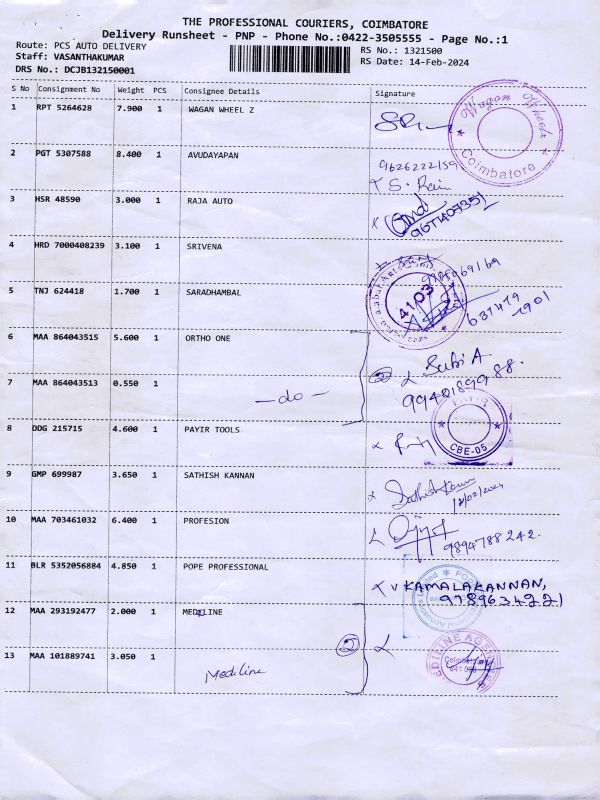 THE PROFESSIONAL COURIERS, COIMBATORE
Delivery Runsheet - PNP - Phone No.:0422-3505555 - Page No.:1
Route: PCS AUTO DELIVERY
Staff: VASANTHAKUMAR
DRS No.: DCJB132150001
RS No.: 1321500
RS Date: 14-Feb-2024
S No Consignment No Weight PCS Consignee Details Signature
1 RPT 5264628 7.900 1 WAGAN WHEEL Z
Wagan Wheels
Coimbatore
2 PGT 5307588 8.400 1 AVUDAYAPAN
9626222159
3 HSR 48590 3.000 1 RAJA AUTO
4 HRD 7000408239 3.100 1 SRIVENA
5 TNJ 624418 1.700 1 SARADHAMBAL
4103
6 MAA 864043515 5.600 1 ORTHO ONE
2 Subi A
7 MAA 864043513 0.550 1 - do -
9940189988.
8 DDG 215715 4.600 1 PAYIR TOOLS
CBE-05
9 GMP 699987 3.650 1 SATHISH KANNAN
Sathishkannan
10 MAA 703461032 6.400 1 PROFESION
9894788242.
11 BLR 5352056884 4.850 1 POPE PROFESSIONAL
V KAMALAKANNAN,
9789634221
12 MAA 293192477 2.000 1 MEDILINE
2
13 MAA 101889741 3.050 1 Mediline